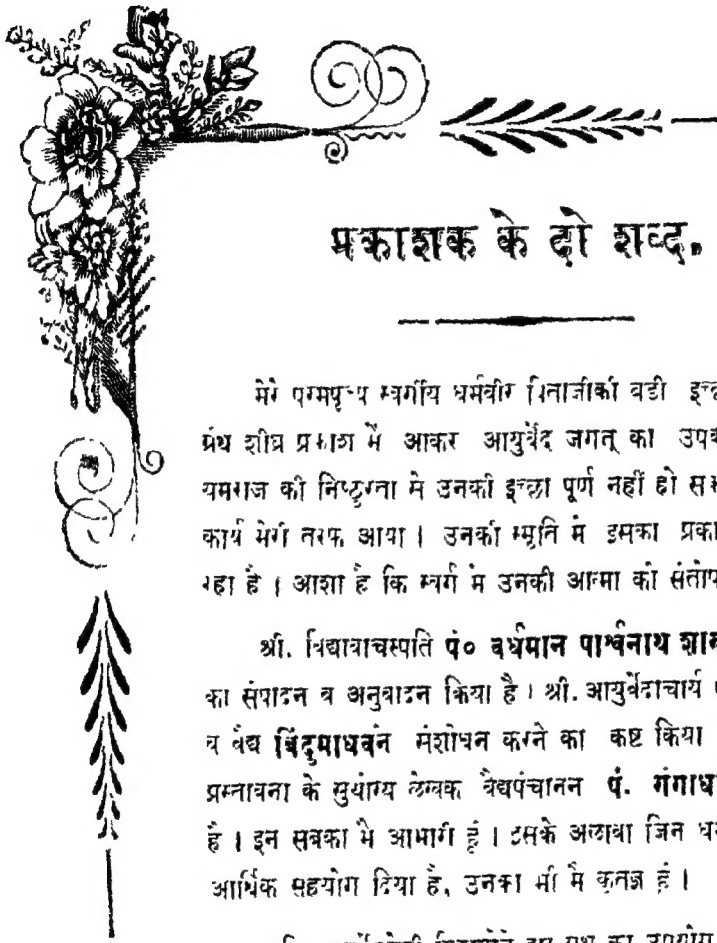 प्रकाशक के दो शब्द.
मेरे परमपूज्य स्वर्गीय धर्मवीर पिताजीकी बडी इच्छ
ग्रंथ शीघ्र प्रकाश में आकर आयुर्वेद जगत् का उपक
यमराज की निष्ठुरता से उनकी इच्छा पूर्ण नहीं हो सक
कार्य मेरी तरफ आया। उनकी स्मृति में इसका प्रका
रहा है। आशा है कि स्वर्ग में उनकी आत्मा को संतोष
श्री. विद्यावाचस्पति पं० वर्धमान पार्श्वनाथ शास
का संपादन व अनुवादन किया है। श्री. आयुर्वेदाचार्य
व वैद्य बिंदुमाधवने संशोधन करने का कष्ट किया
प्रस्तावना के सुयोग्य लेखक वैद्यपंचानन पं. गंगाध
है। इन सबका मै आभारी हूं। इसके अलावा जिन ध
आर्थिक सहयोग दिया है, उनका भी मै कृतज्ञ हूं।